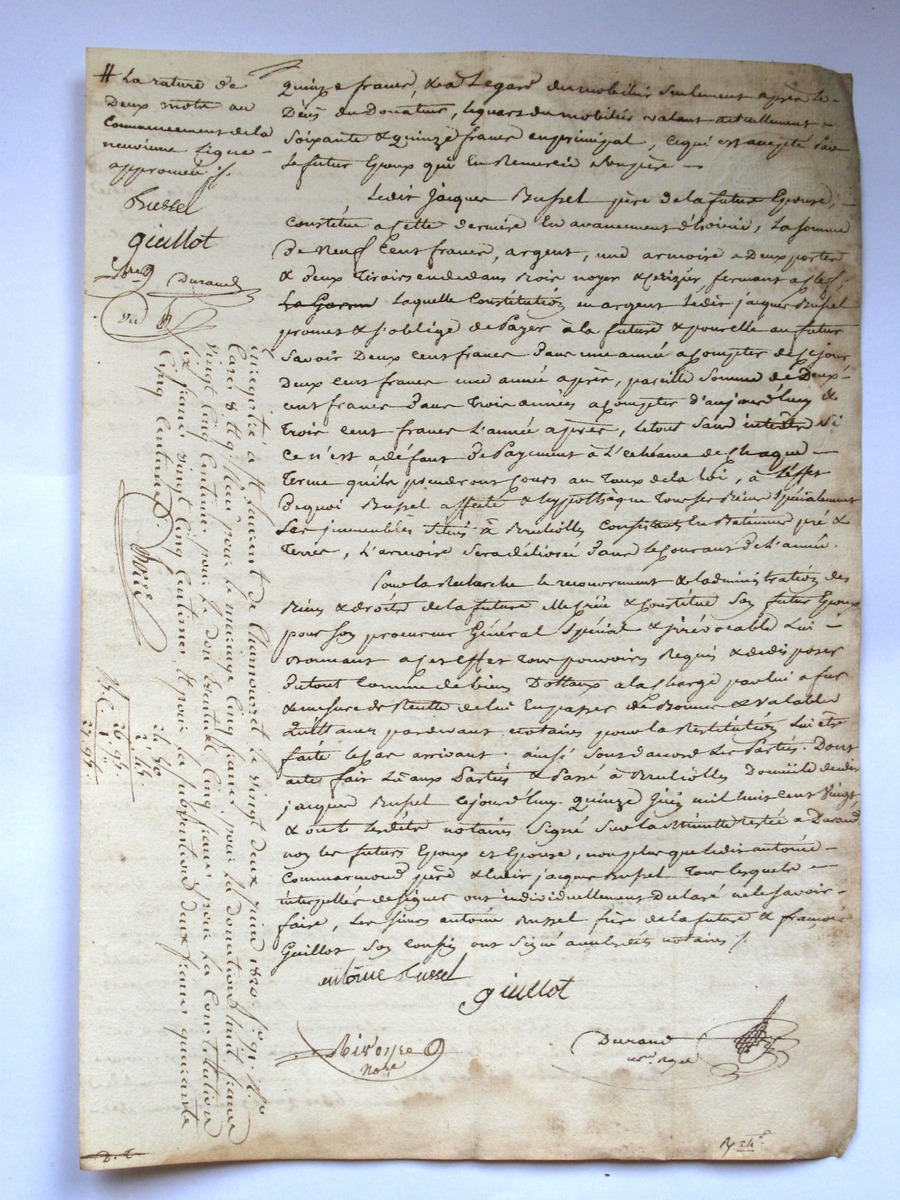 # La rature de
Deux mots au
Commencement de la
neuvième ligne
approuvée ./.
Russel
giullot
Durand
quinze francs, & à Legard du mobilier Seulement après le
Deces du Donateur, lequart du mobilier valant actuellement
Soixante & quinze francs en principal, ce qui est accepté par
Le futur Epoux qui En Remercie Son père
Ledit Jacques Russel père de la future Epouse,
Constitue a Cette derniere En avancement d'hoirie, La Somme
De Neuf Cent francs, argent, une armoire a Deux portes
& deux Tiroirs en dedans Bois noyer & cerizier, fermant a clef,
Laquelle Constitution en argent Ledit jacques Russel
promet & s'oblige de Payer à la future & pour elle au futur
Savoir Deux Cent francs Dans une année a Compter de Ce jour
Deux Cent francs une année après, pareille Somme de Deux
cent francs Dans Trois années a Compter d'aujourd'huy &
Trois cent francs L'année après, Le tout Sans interets Si
Ce n'est a défaut de Payement à L'echéance de Chaque
Terme qu'ils prendront Cours au Taux de la Loi, à L'effet
De quoi Russel affecte & hypothèque Tous Ses Biens Spécialement
Les immeubles Situés à Brulioles Consistants En Batiments pré &
Terres, L'armoire Sera délivrée Dans le Courant de L'année.
Pour la Recherche le recouvrement & L'administration des
Biens & droits de la future Elle Crée & Constitue Son futur Epoux
pour Son procureur Général Spécial & irrévocable Lui
Donnant a Cet Effet Tous pouvoirs Requis & de disposer
Du tout Comme de biens Dottaux a la Charge par lui a fur
& mesure de Recette de lui En passer de Bonne & valable
Quittance pardevant notaires pour la Restitution Lui etre
faite le Cas arrivant. ainsi Sont d'accord Les Parties. Dont
acte fait Lu aux Parties & Passé à Brulioles Domicile dudit
jacques Russel Cejourd'huy quinze Juin mil huit cent vingt
& ont Lesdits notaires Signé Sur la Minutte restée a Durand
non les futurs Epoux et Epouse, non plus que ledit antoine
Commarmond père & ledit jacques Russel Tous lesquels
interpellés de Signer ont individuellement Déclaré ne le Savoir
faire, Les Sieurs antoine Russel frère de la future & françois
Guillot Son Cousin ont Signé avec lesdits notaires ./.
antoine Russel
giullot
Durand
not. royal
Enregistré à St Laurent de Chamousset le vingt deux juin 1820
pour le mariage Cinq francs, pour la donation huit francs
vingt Cinq Centimes, pour Le don Cinq francs pour La Constitution
Six francs vingt Cinq Centimes, Et pour la Subvention deux francs quarante
Cinq Centimes
24 50
2 45
26 95
1
27 95
D. C.